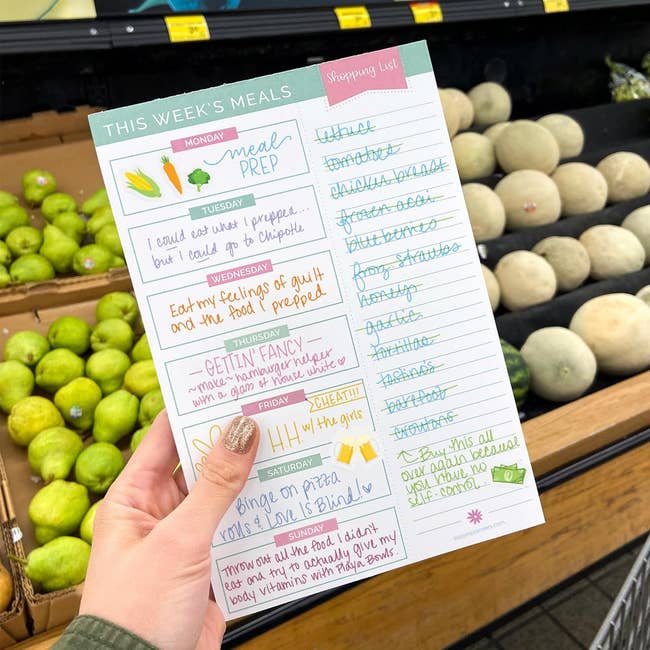 THIS WEEK'S MEALS
MONDAY
meal
PREP
TUESDAY
I could eat what I prepped...
but I could go to Chipotle
WEDNESDAY
Eat my feelings of guilt
and the food I prepped
THURSDAY
-GETTIN' FANCY-
~make~hamburger helper
with a glass of house white
FRIDAY
CHEAT!!!
HH w/ the girls
SATURDAY
Binge on pizza
rolls & Love Is Blind!
SUNDAY
Throw out all the food I didn't
eat and try to actually give my
body vitamins with Playa Bowls.
Shopping List
lettuce
tomatoes
chicken breast
frozen acai
blueberries
froz straubs
honey
garlic
tortillas
tostinos
barefoot
croutons
Buy this all
over again because
you have no
self-control.